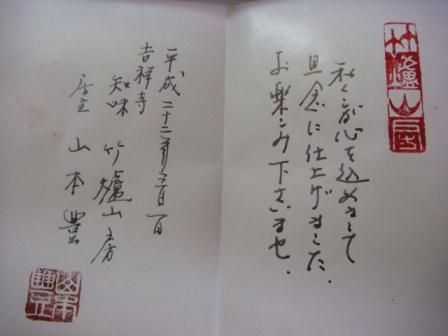 竹爐山房
私くが心を込めまして
旦念に仕上げました.
お楽しみ下さいませ.
平成二十二年六月一日
吉祥寺
知味 竹爐山房
店主 山本豊
山本豊